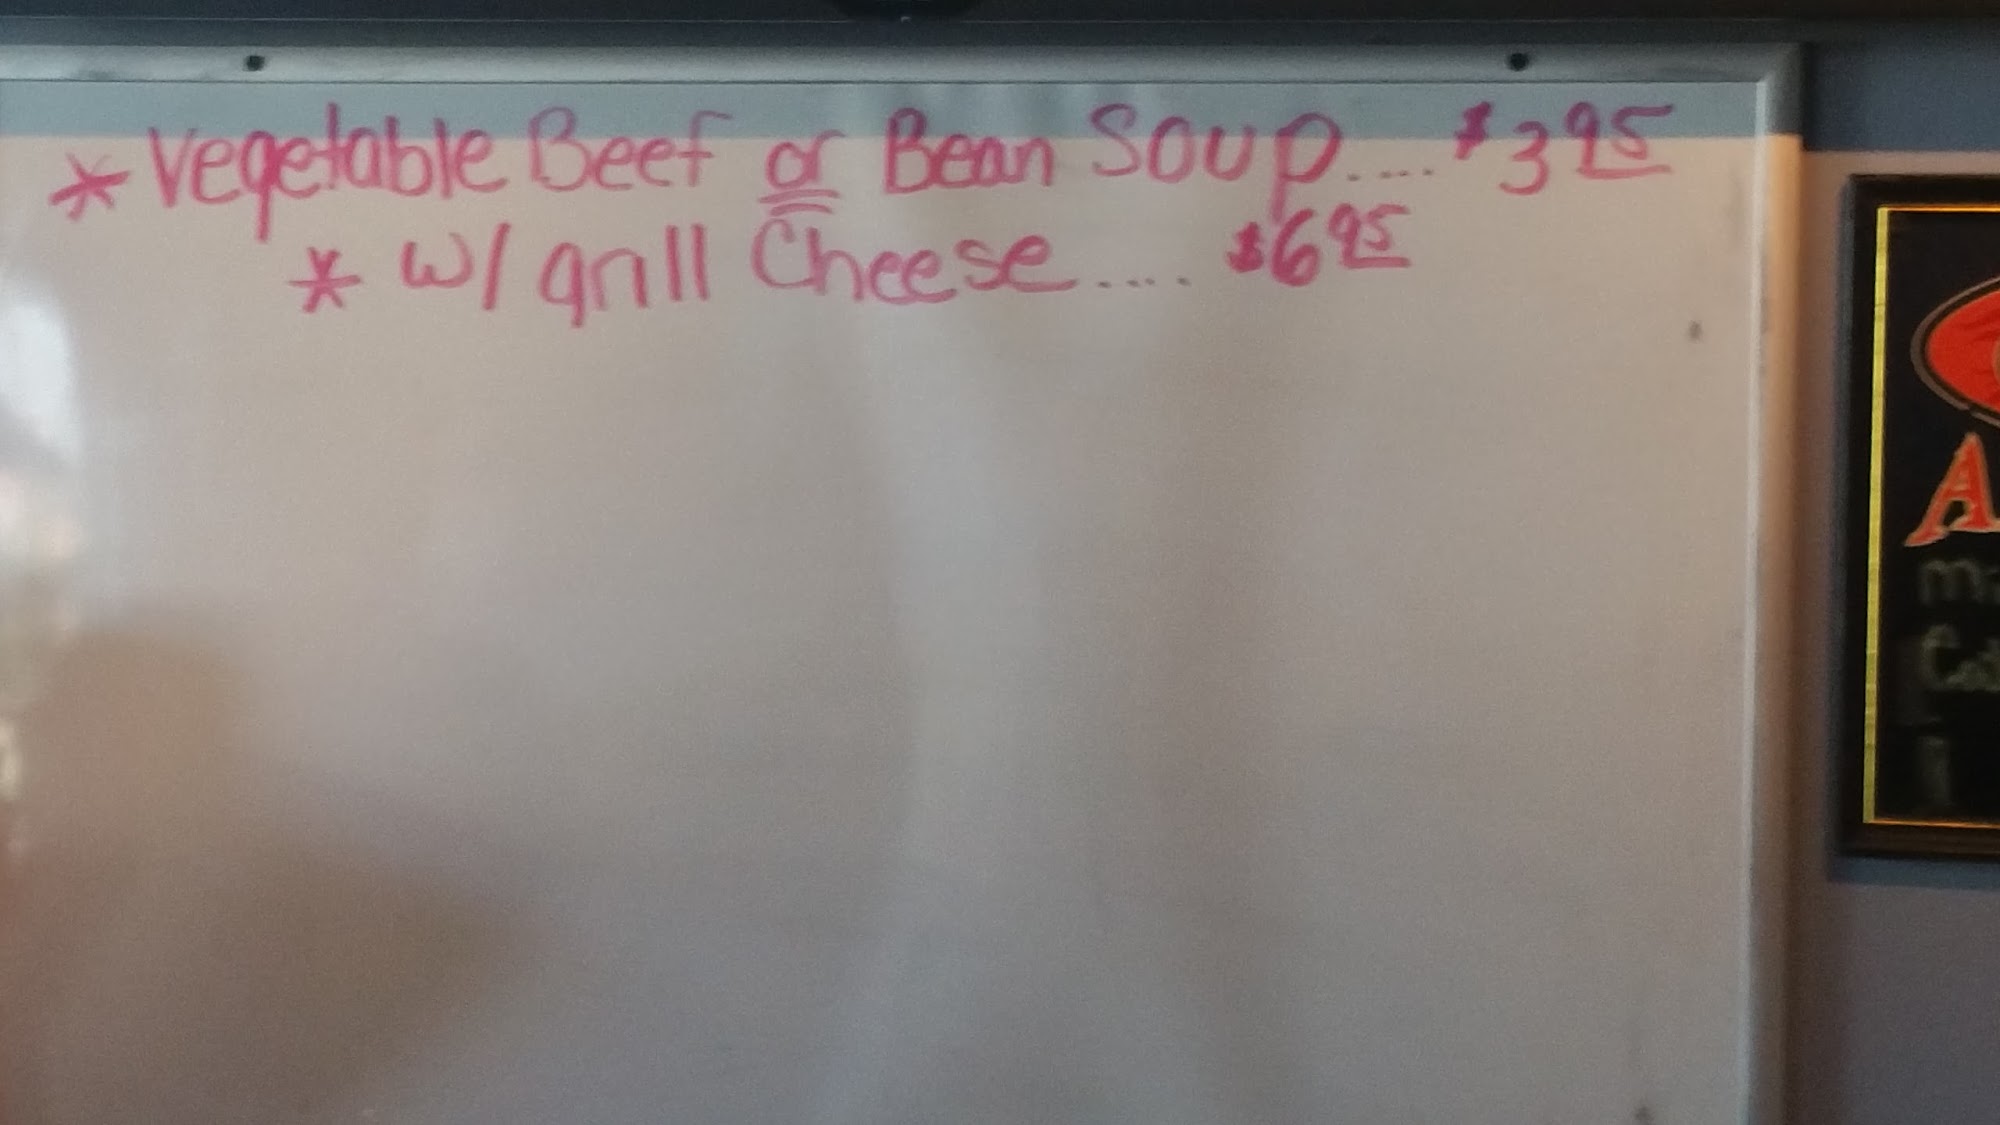 * Vegetable Beef or Bean Soup.... $3 95
* w/ grill Cheese.... $6 95
A